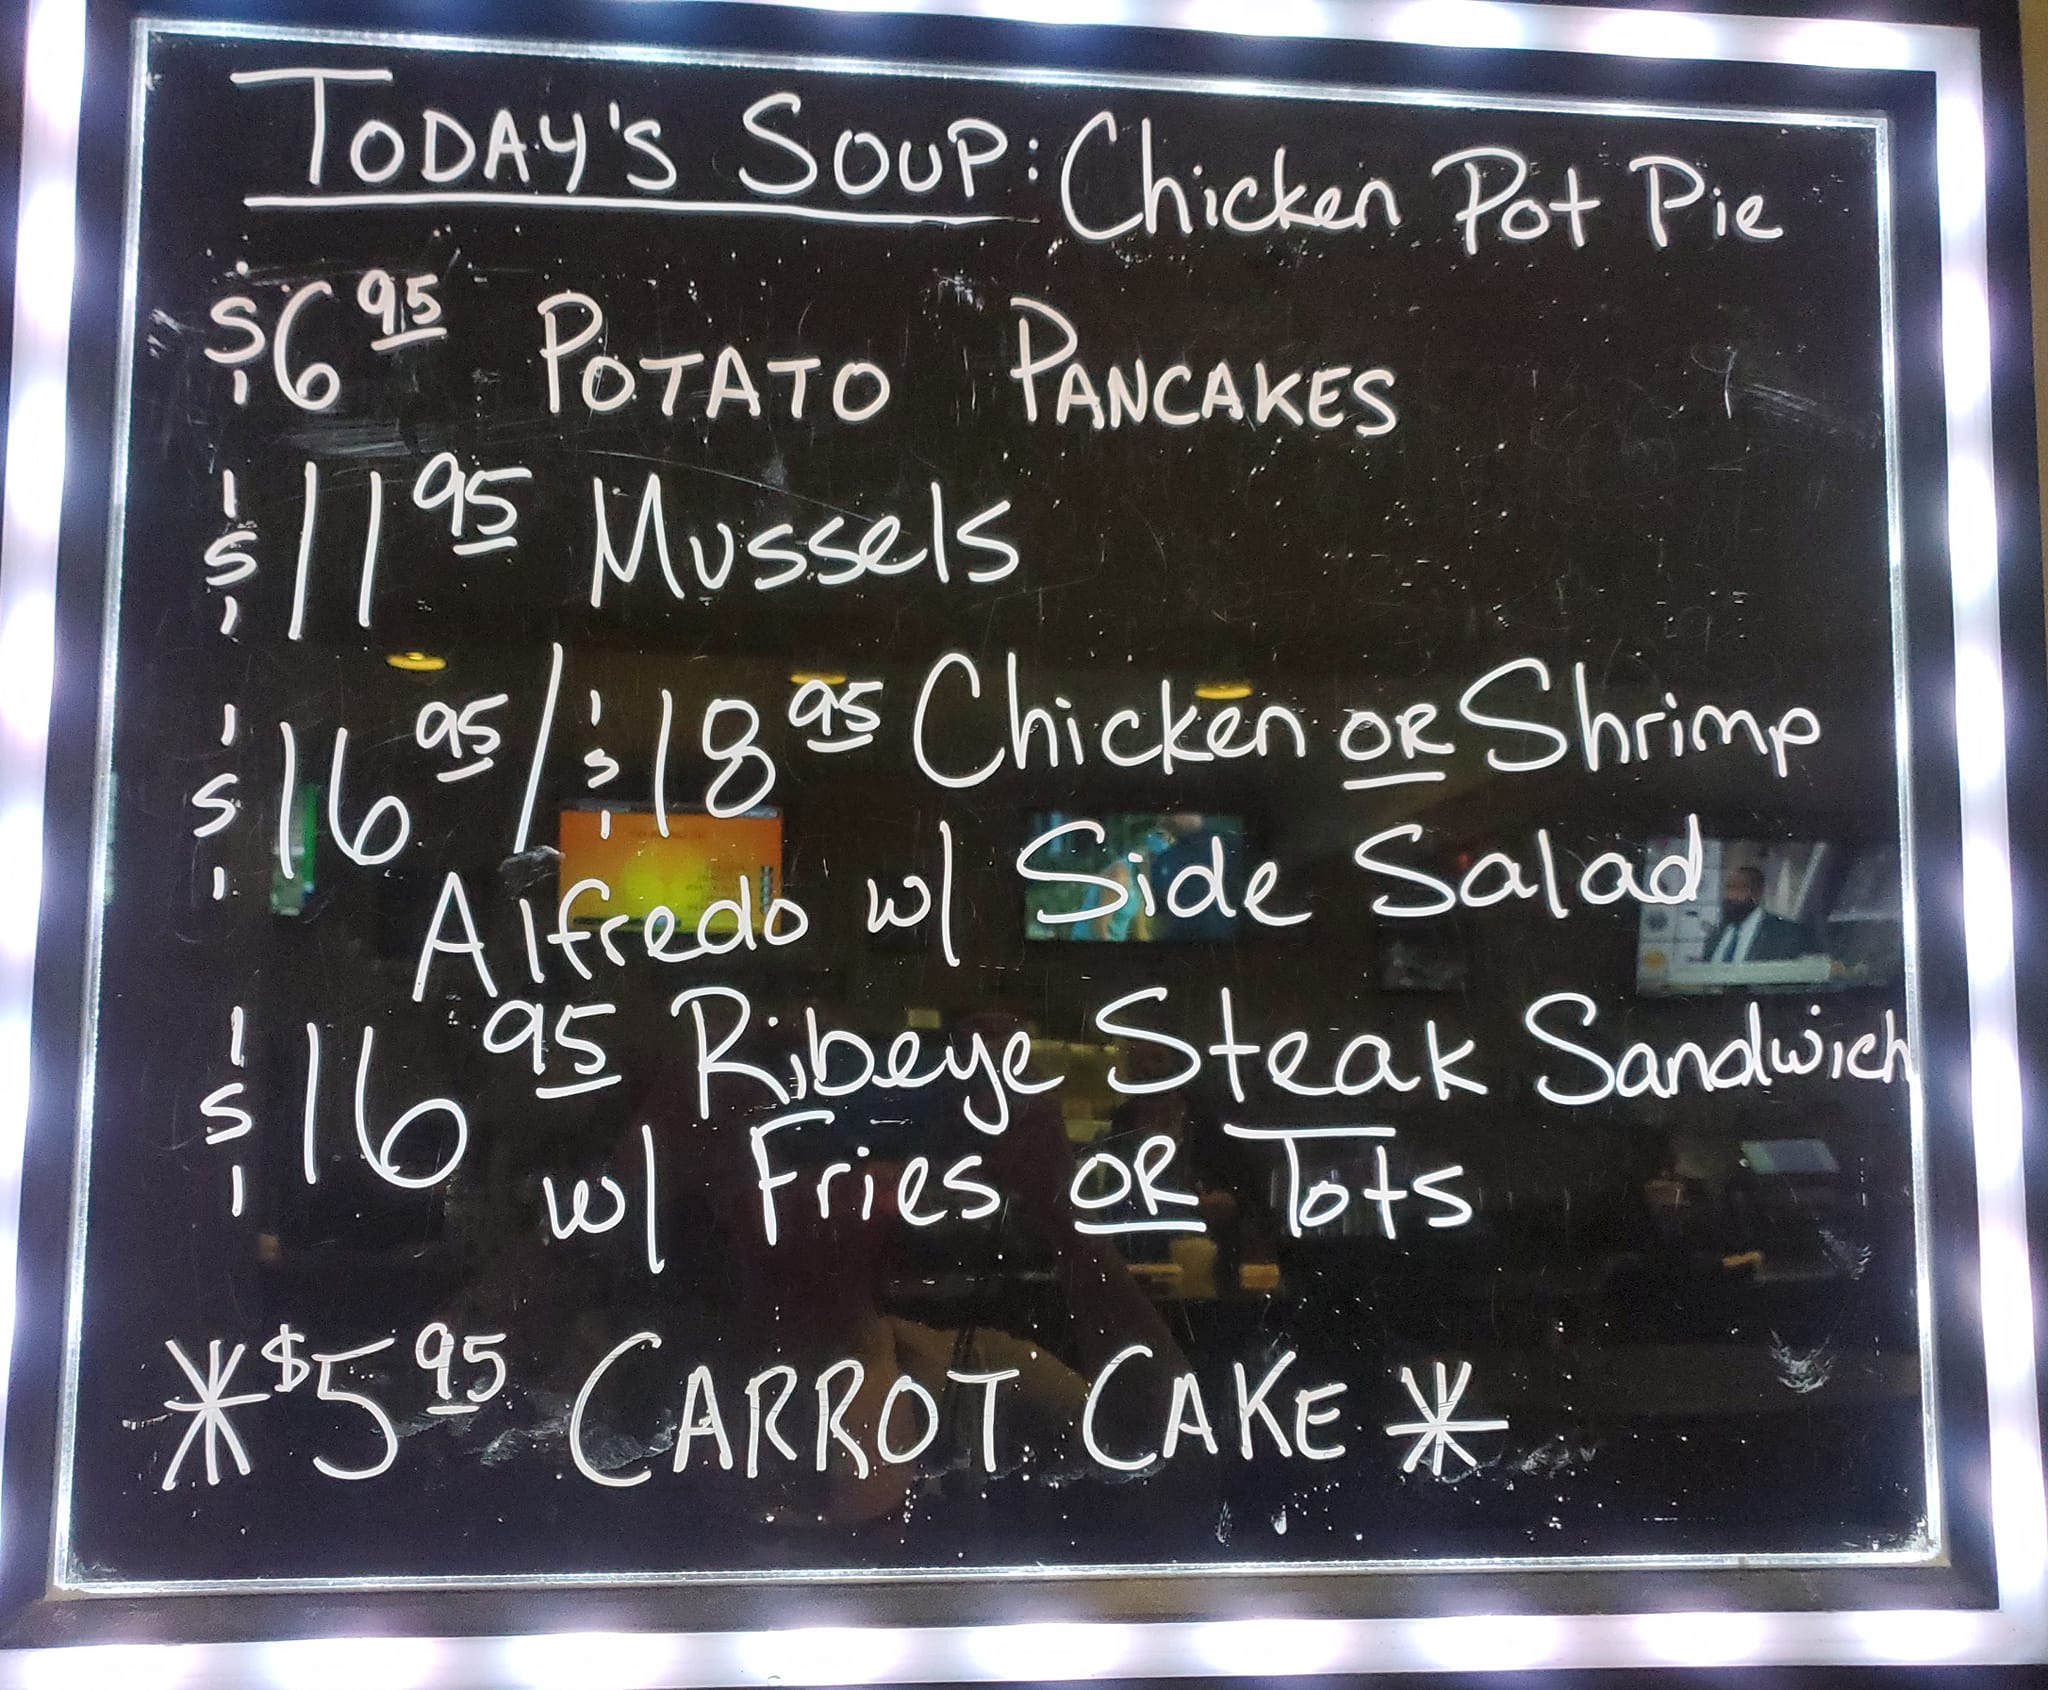 TODAY'S SOUP: Chicken Pot Pie
$6 95 POTATO PANCAKES
$11 95 Mussels
$16 95 / $18 95 Chicken OR Shrimp
Alfredo w/ Side Salad
$16 95 Ribeye Steak Sandwich
w/ Fries OR Tots
* $5 95 CARROT CAKE *